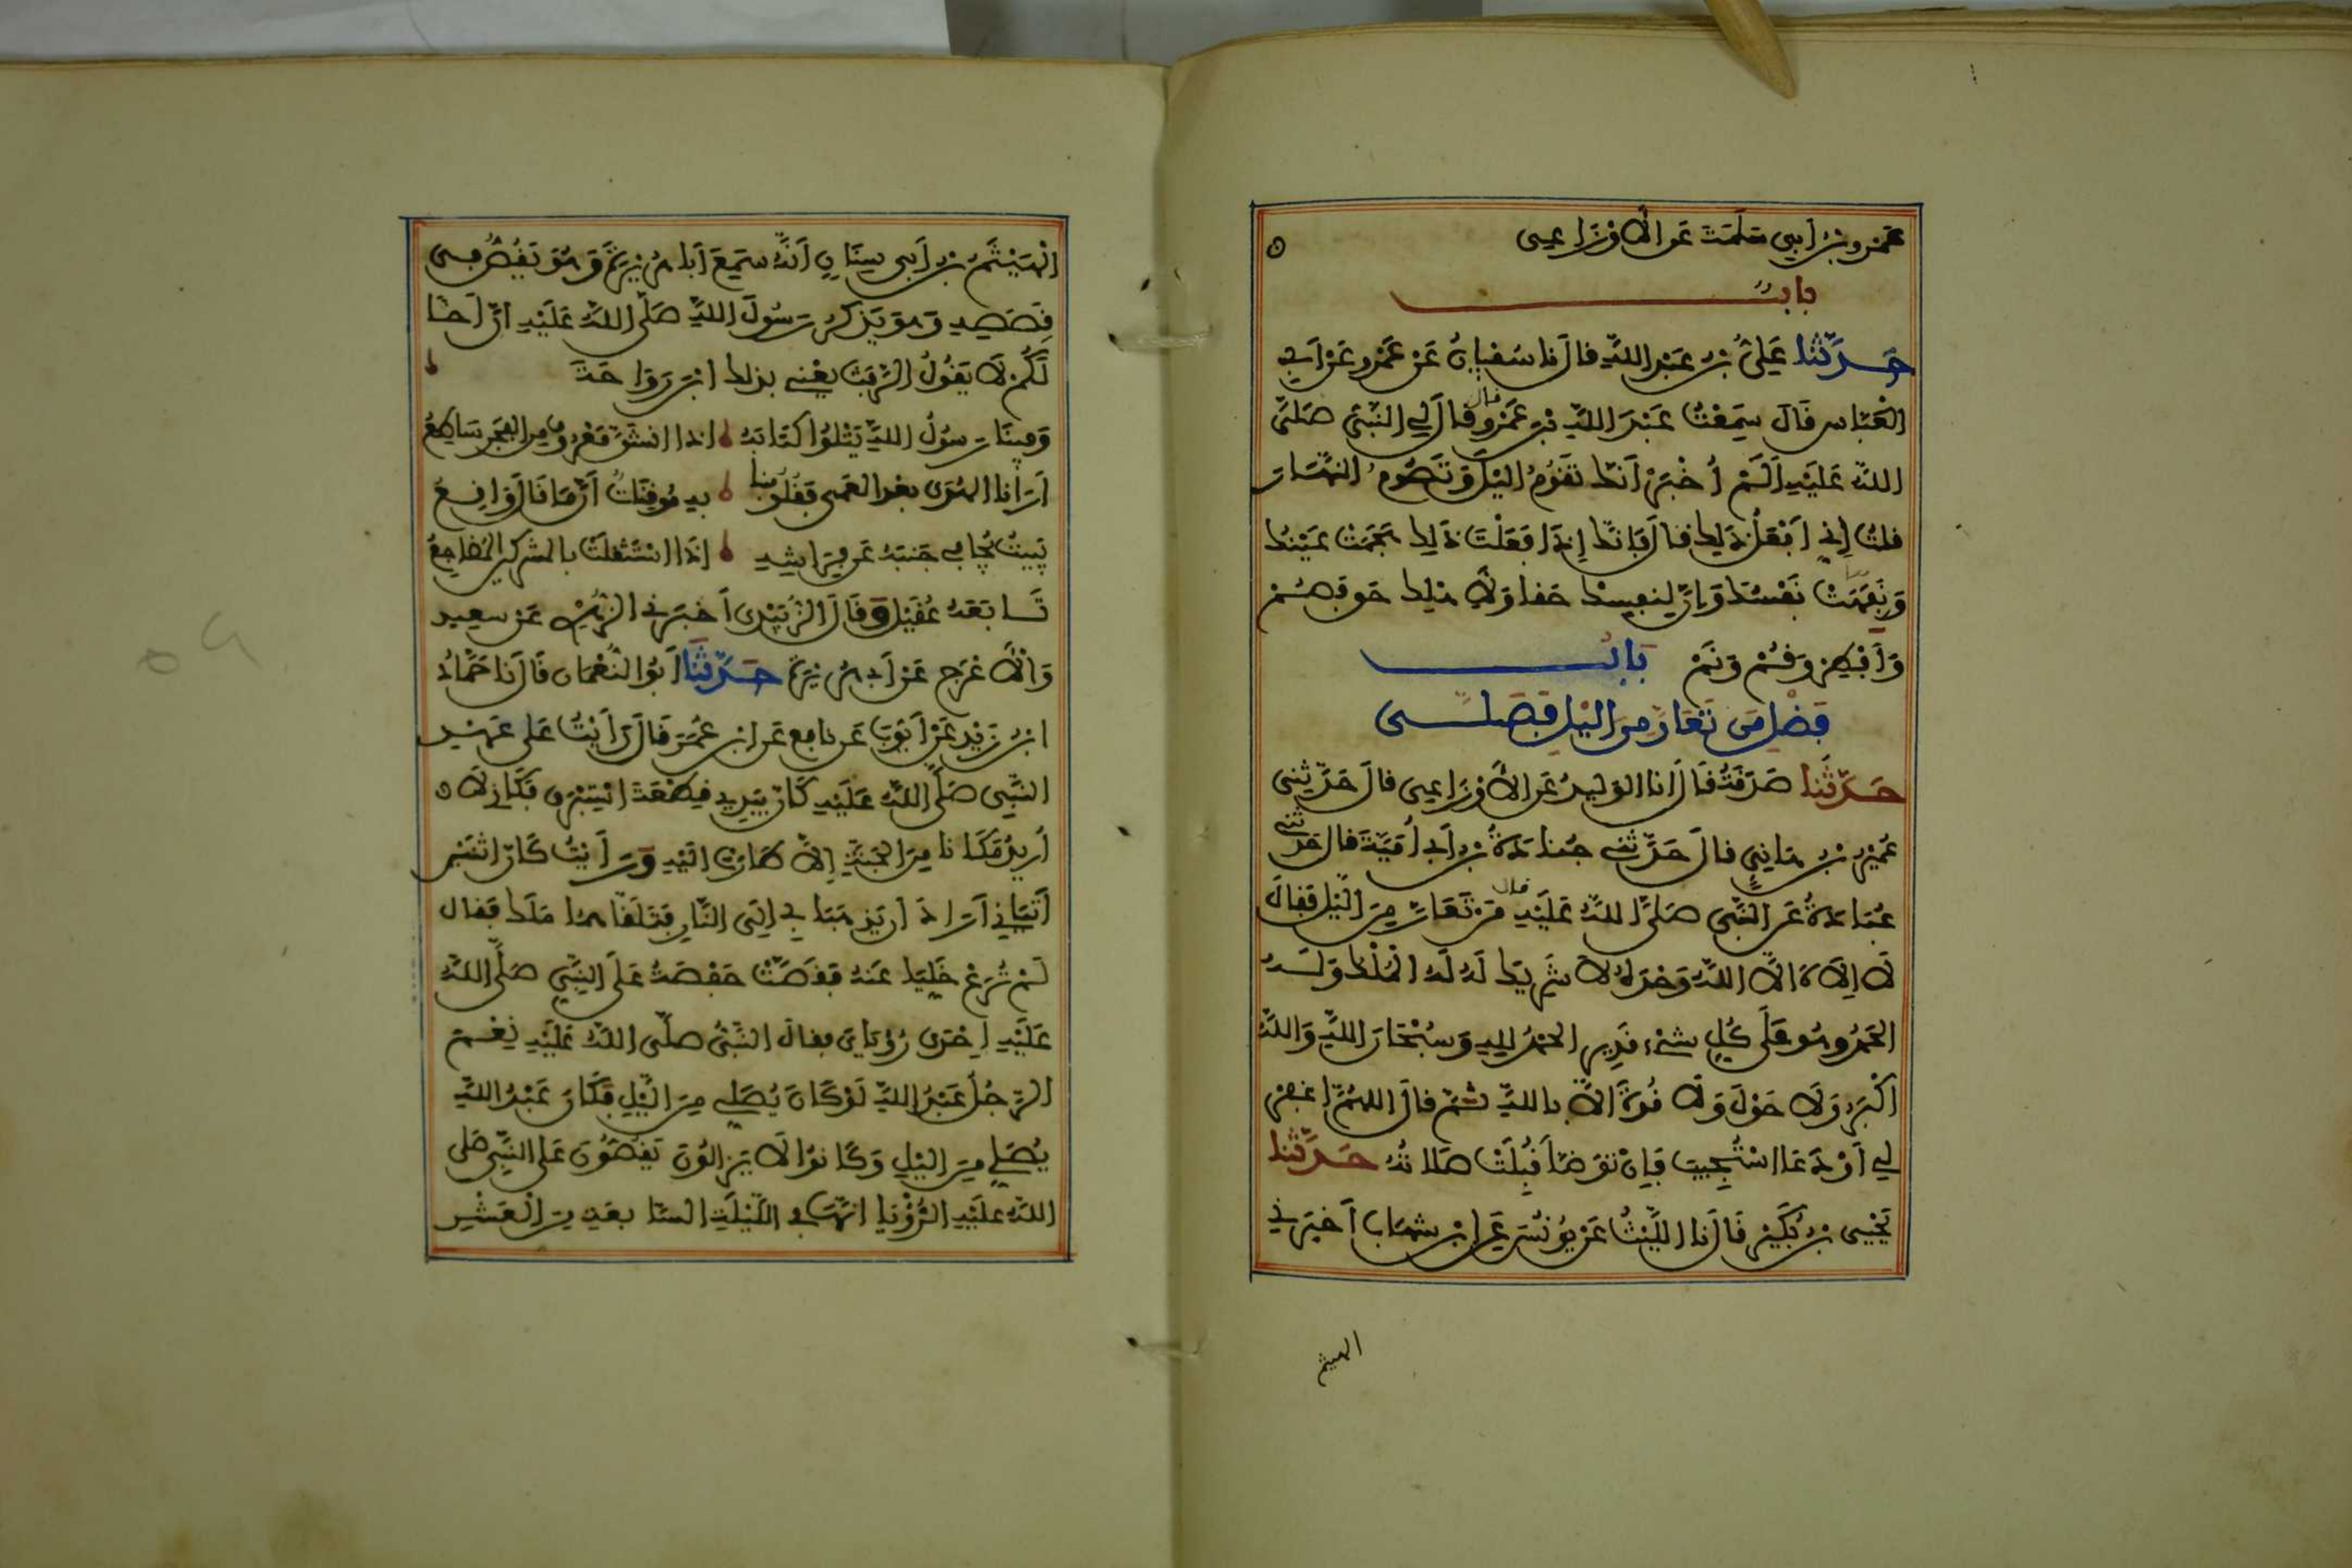 عَمْرُو بْنُ أَبِي سَلَمَةَ عَنِ الْأَوْزَاعِيِّ
بابٌ
حَدَّثَنَا عَلِيُّ بْنُ عَبْدِ اللَّهِ قَالَ نَا سُفْيَانُ عَنْ عَمْرٍو عَنْ أَبِي
الْعَبَّاسِ قَالَ سَمِعْتُ عَبْدَ اللَّهِ بْنَ عَمْرٍو قال قَالَ لِي النَّبِيُّ صَلَّى
اللَّهُ عَلَيْهِ أَلَمْ أُخْبَرْ أَنَّكَ تَقُومُ الَّيْلَ وَتَصُومُ النَّهَارَ
قُلْتُ إِنِّي أَفْعَلُ ذَلِكَ قَالَ فَإِنَّكَ إِذَا فَعَلْتَ ذَلِكَ هَجَمَتْ عَيْنُكَ
وَنَفِهَتْ نَفْسُكَ وَإِنَّ لِنَفْسِكَ حَقًّا وَلِأَهْلِكَ حَقًّا فَصُمْ
وَأَفْطِرْ وَقُمْ وَنَمْ بَابُ
فَضْلِ مَنْ تَعَارَّ مِنَ الَّيْلِ فَصَلَّى
حَدَّثَنَا صَدَقَةُ قَالَ أَنَا الْوَلِيدُ عَنِ الْأَوْزَاعِيِّ قَالَ حَدَّثَنِي
عُمَيْرُ بْنُ هَانِئٍ قَالَ حَدَّثَنِي جُنَادَةُ بْنُ أَبِي أُمَيَّةَ قَالَ حَدَّثَنِي
عُبَادَةُ عَنِ النَّبِيِّ صَلَّى اللَّهُ عَلَيْهِ قال مَنْ تَعَارَّ مِنَ الَّيْلِ فَقَالَ
لَا إِلَاهَ إِلَّا اللَّهُ وَحْدَهُ لَا شَرِيكَ لَهُ لَهُ الْمُلْكُ وَلَهُ
الْحَمْدُ وَهُوَ عَلَى كُلِّ شَيْءٍ قَدِيرٌ الْحَمْدُ لِلَّهِ وَسُبْحَانَ اللَّهِ وَاللَّهُ
أَكْبَرُ وَلَا حَوْلَ وَلَا قُوَّةَ إِلَّا بِاللَّهِ ثُمَّ قَالَ اللَّهُمَّ اغْفِرْ
لِي أَوْ دَعَا اسْتُجِيبَ فَإِنْ تَوَضَّأَ قُبِلَتْ صَلَاتُهُ حَدَّثَنَا
يَحْيَى بْنُ بُكَيْرٍ قَالَ نَا اللَّيْثُ عَنْ يُونُسَ عَنِ ابْنِ شِهَابٍ أَخْبَرَنِي
الهيثم
الْهَيْثَمُ بْنُ أَبِي سِنَانٍ أَنَّهُ سَمِعَ أَبَا هُرَيْرَةَ وَهُوَ يَقُصُّ فِي
قَصَصِهِ وَهُوَ يَذْكُرُ رَسُولَ اللَّهِ صَلَّى اللَّهُ عَلَيْهِ إِنَّ أَخًا
لَكُمْ لَا يَقُولُ الرَّفَثَ يَعْنِي بِذَلِكَ ابْنَ رَوَاحَةَ
وَفِينَا رَسُولُ اللَّهِ يَتْلُوا كِتَابَهُ إِذَا انْشَقَّ مَعْرُوفٌ مِنَ الْفَجْرِ سَاطِعُ
أَرَانَا الْهُدَى بَعْدَ الْعَمَى فَقُلُوبُنَا بِهِ مُوقِنَاتٌ أَنَّ مَا قَالَ وَاقِعُ
يَبِيتُ يُجَافِي جَنْبَهُ عَنْ فِرَاشِهِ إِذَا اسْتَثْقَلَتْ بِالْمُشْرِكِينَ الْمَضَاجِعُ
تَابَعَهُ عُقَيْلٌ وَقَالَ الزُّبَيْدِيُّ أَخْبَرَنِي الزُّهْرِيُّ عَنْ سَعِيدٍ
وَالْأَعْرَجِ عَنْ أَبِي هُرَيْرَةَ حَدَّثَنَا أَبُو النُّعْمَانِ قَالَ نَا حَمَّادُ
ابْنُ زَيْدٍ عَنْ أَيُّوبَ عَنْ نَافِعٍ عَنِ ابْنِ عُمَرَ قَالَ رَأَيْتُ عَلَى عَهْدِ
النَّبِيِّ صَلَّى اللَّهُ عَلَيْهِ كَأَنَّ بِيَدِي قِطْعَةَ إِسْتَبْرَقٍ فَكَأَنِّي لَا
أُرِيدُ مَكَانًا مِنَ الْجَنَّةِ إِلَّا طَارَتْ إِلَيْهِ وَرَأَيْتُ كَأَنَّ اثْنَيْنِ
أَتَيَانِي أَرَادَا أَنْ يَذْهَبَا بِي إِلَى النَّارِ فَتَلَقَّاهُمَا مَلَكٌ فَقَالَ
لَمْ تُرَعْ خَلِّيَا عَنْهُ فَقَصَّتْ حَفْصَةُ عَلَى النَّبِيِّ صَلَّى اللَّهُ
عَلَيْهِ إِحْدَى رُؤْيَايَ فَقَالَ النَّبِيُّ صَلَّى اللَّهُ عَلَيْهِ نِعْمَ
الرَّجُلُ عَبْدُ اللَّهِ لَوْ كَانَ يُصَلِّي مِنَ الَّيْلِ فَكَانَ عَبْدُ اللَّهِ
يُصَلِّي مِنَ الَّيْلِ وَكَانُوا لَا يَزَالُونَ يَقُصُّونَ عَلَى النَّبِيِّ صَلَّى
اللَّهُ عَلَيْهِ الرُّؤْيَا أَنَّهَا فِي اللَّيْلَةِ السَّابِعَةِ مِنَ الْعَشْرِ